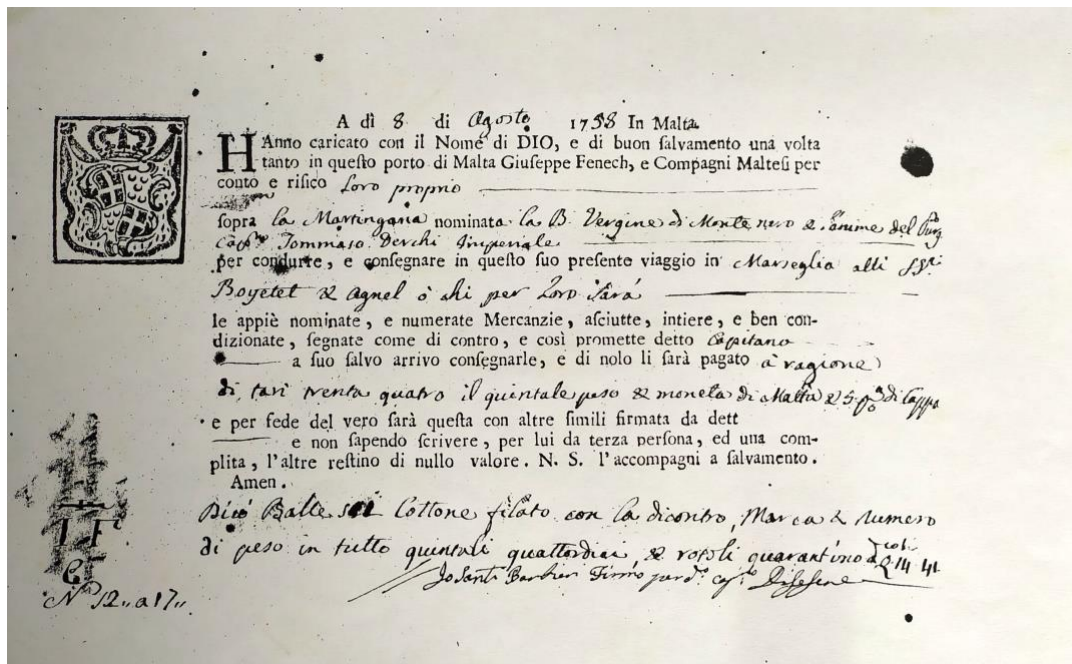 A dì 8 di Agosto 1758 In Malta
HAnno caricato con il Nome di DIO, e di buon ſalvamento una volta
tanto in queſto porto di Malta Giuſeppe Fenech, e Compagni Malteſi per
conto e riſico Loro proprio
ſopra la Martingana nominata la B. Vergine di Monte nero & l'anime del Purg
Capn Tommaso Derchi Imperiale
per condurre, e conſegnare in queſto ſuo preſente viaggio in Marseglia alli SS.ri
Boyetet & Agnel ò chi per Loro Sarà
le appiè nominate, e numerate Mercanzie, aſciutte, intiere, e ben con-
dizionate, ſegnate come di contro, e così promette detto Capitano
a ſuo ſalvo arrivo conſegnarle, e di nolo li ſarà pagato à ragione
di tarì trenta quatro il quintale peso & moneta di Malta & 5 p% di Cappa
e per fede del vero ſarà queſta con altre ſimili firmata da dett
e non ſapendo ſcrivere, per lui da terza perſona, ed una com-
plita, l'altre reſtino di nullo valore. N. S. l'accompagni a ſalvamento.
Amen.
Dico Balle sei Cottone filato con la dicontro Marca & Numero
di peso in tutto quintali quattordici & rotoli quarantuno 14 41
Io Santi Barbieri Firmo per d.º cap.º
N.º 12,, a 17,,